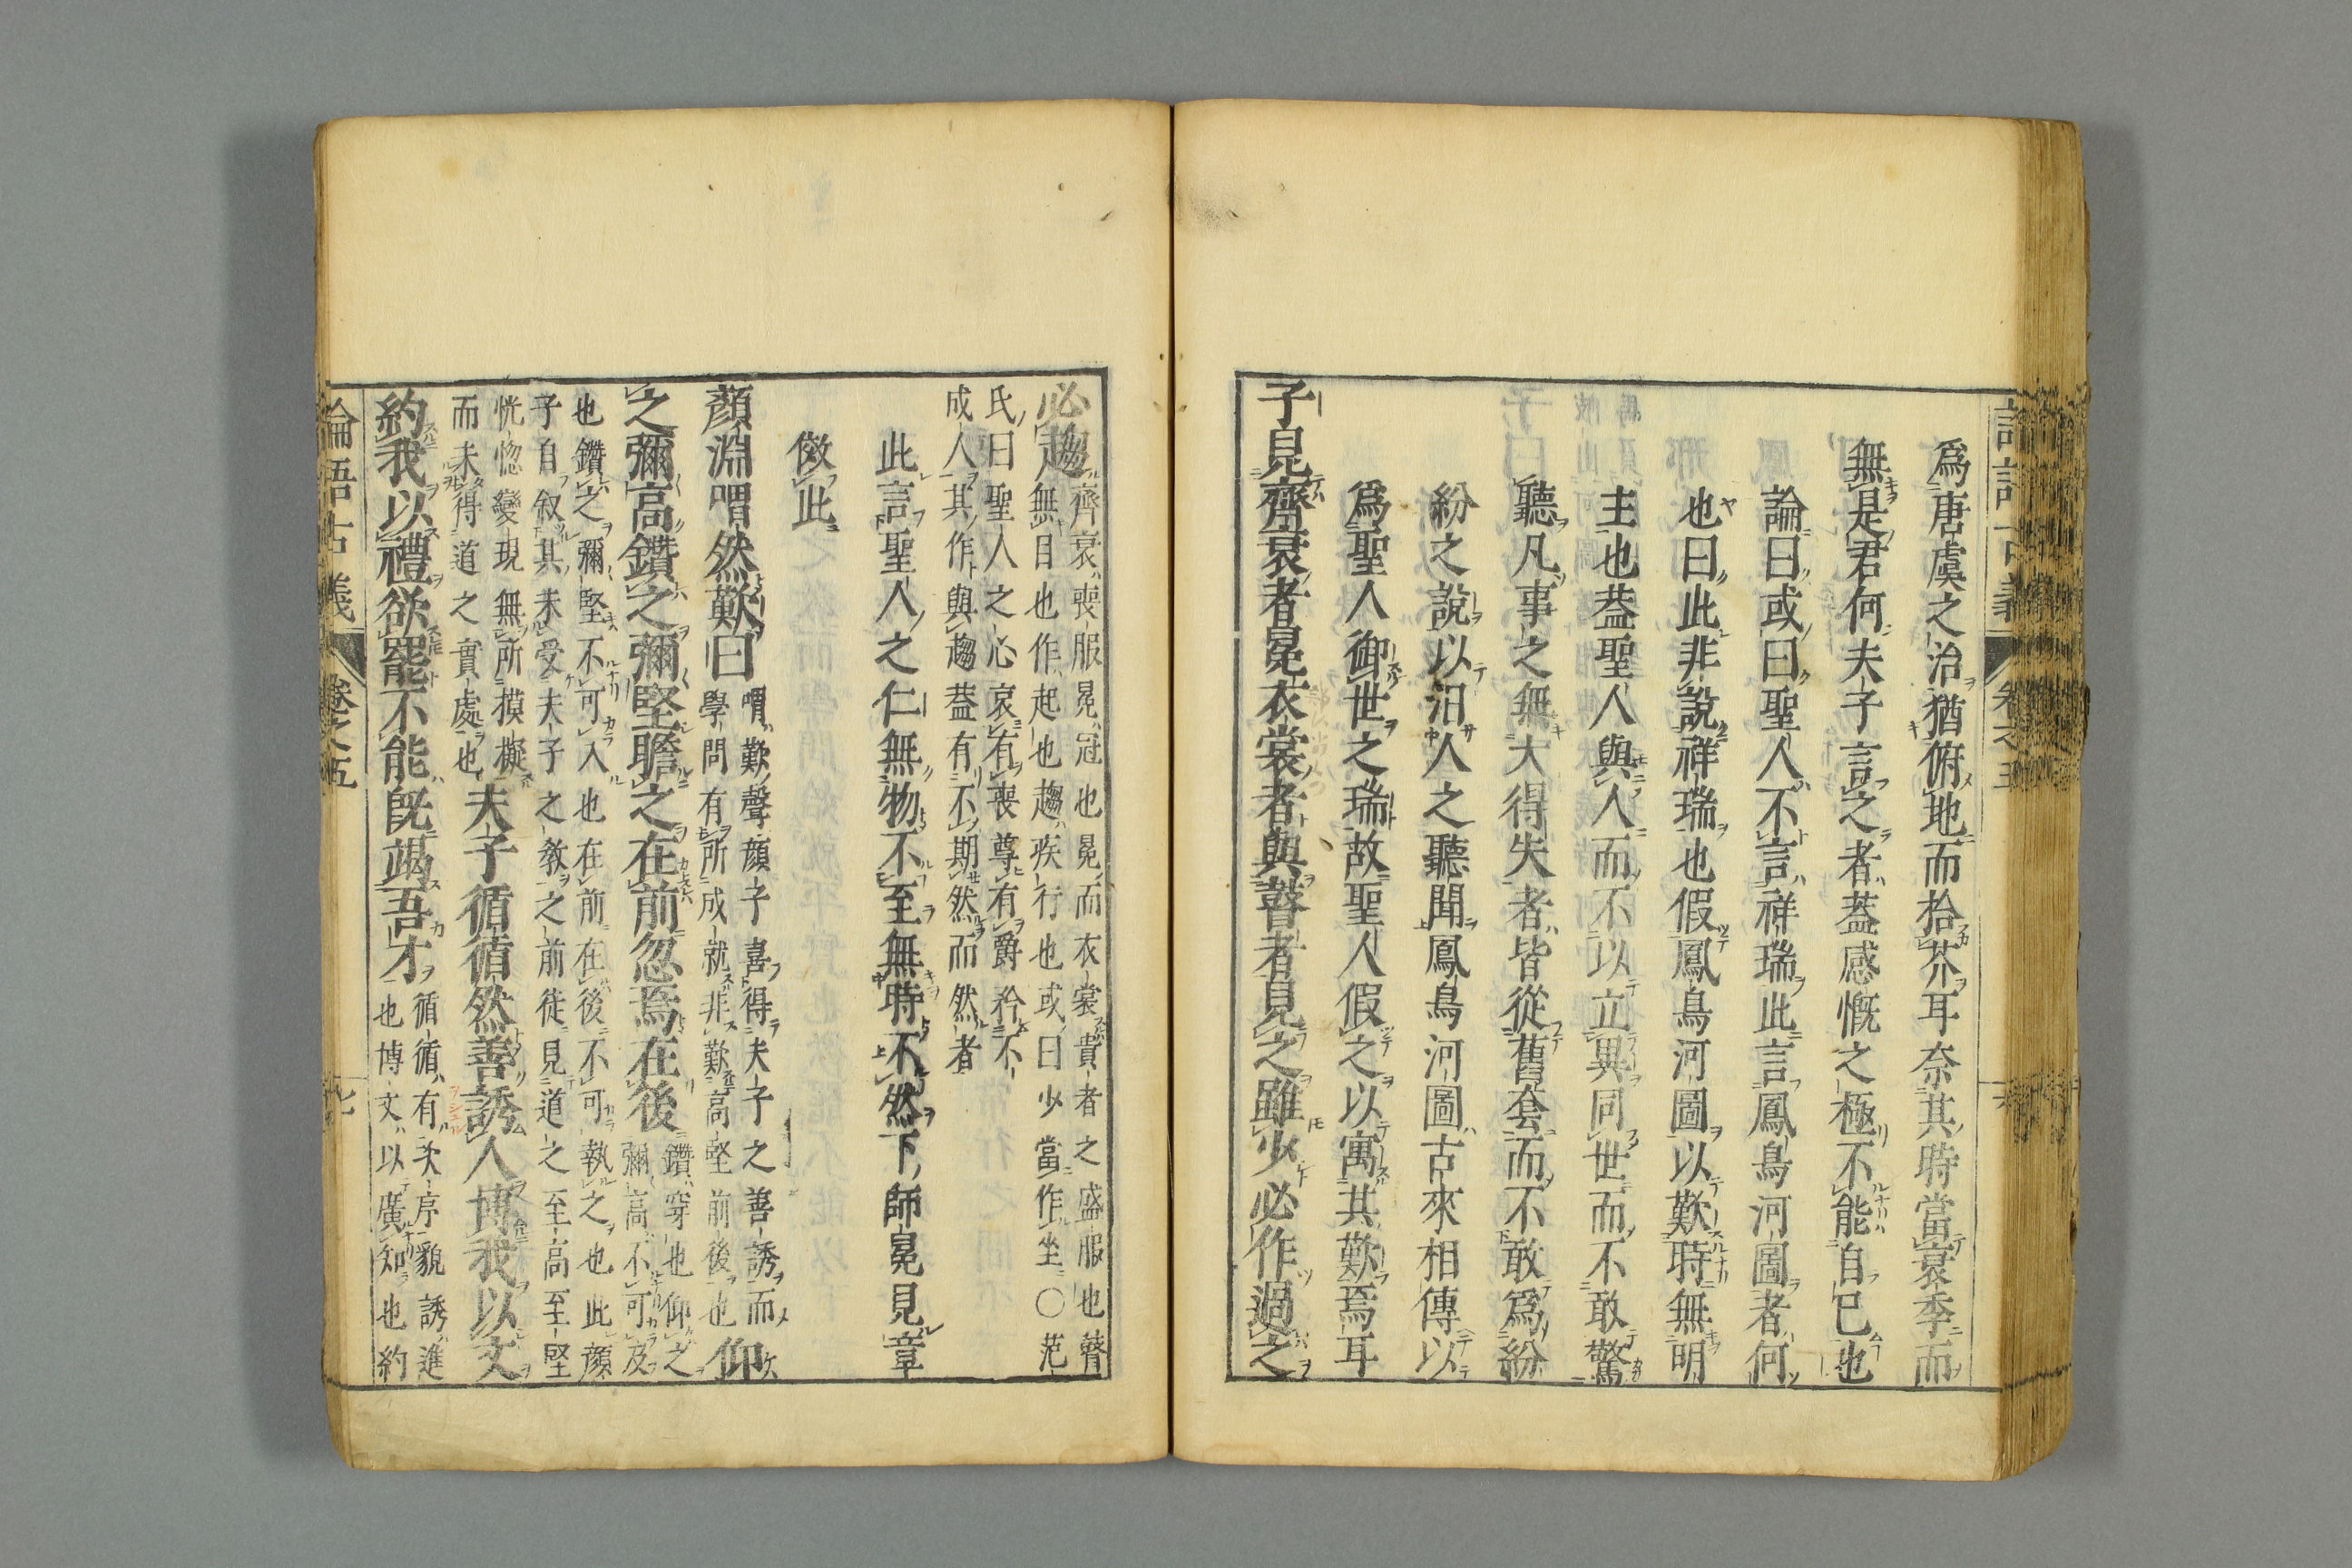 爲唐虞之治猶俯地而拾芥耳奈其時當衰季而
無是君何夫子言之者葢感慨之極不能自已也
論曰或曰聖人不言祥瑞此言鳳鳥河圖者何
也曰此非說祥瑞也假鳳鳥河圖以歎時無明
主也葢聖人與人而不以立異同世而不敢驚
聽凡事之無大得失者皆從舊套而不敢爲紛
紛之說以汨人之聽聞鳳鳥河圖古來相傳以
爲聖人御世之瑞故聖人假之以寓其歎焉耳
子見齊衰者冕衣裳者與瞽者見之雖少必作過之
必趨
齊衰喪服冕冠也冕而衣裳貴者之盛服也瞽
無目也作起也趨疾行也或曰少當作坐○范
氏曰聖人之心哀有喪尊有爵矜不
成人其作與趨葢有不期然而然者
此言聖人之仁無物不至無時不然下師冕見章
倣此
顏淵喟然歎曰
喟歎聲顏子喜得夫子之善誘而
學問有所成就非歎高堅前後也
仰
之彌高鑽之彌堅瞻之在前忽焉在後
鑽穿也仰之
彌高不可及
也鑽之彌堅不可入也在前在後不可執之也此顏
子自敘其未受夫子之教之前徒見道之至高至堅
恍惚變現無所摸擬
而未得道之實處也
夫子循循然善誘人博我以文
約我以禮欲罷不能既竭吾才
循循有次序貌誘進
也博文以廣知也約
論語古義
卷之五